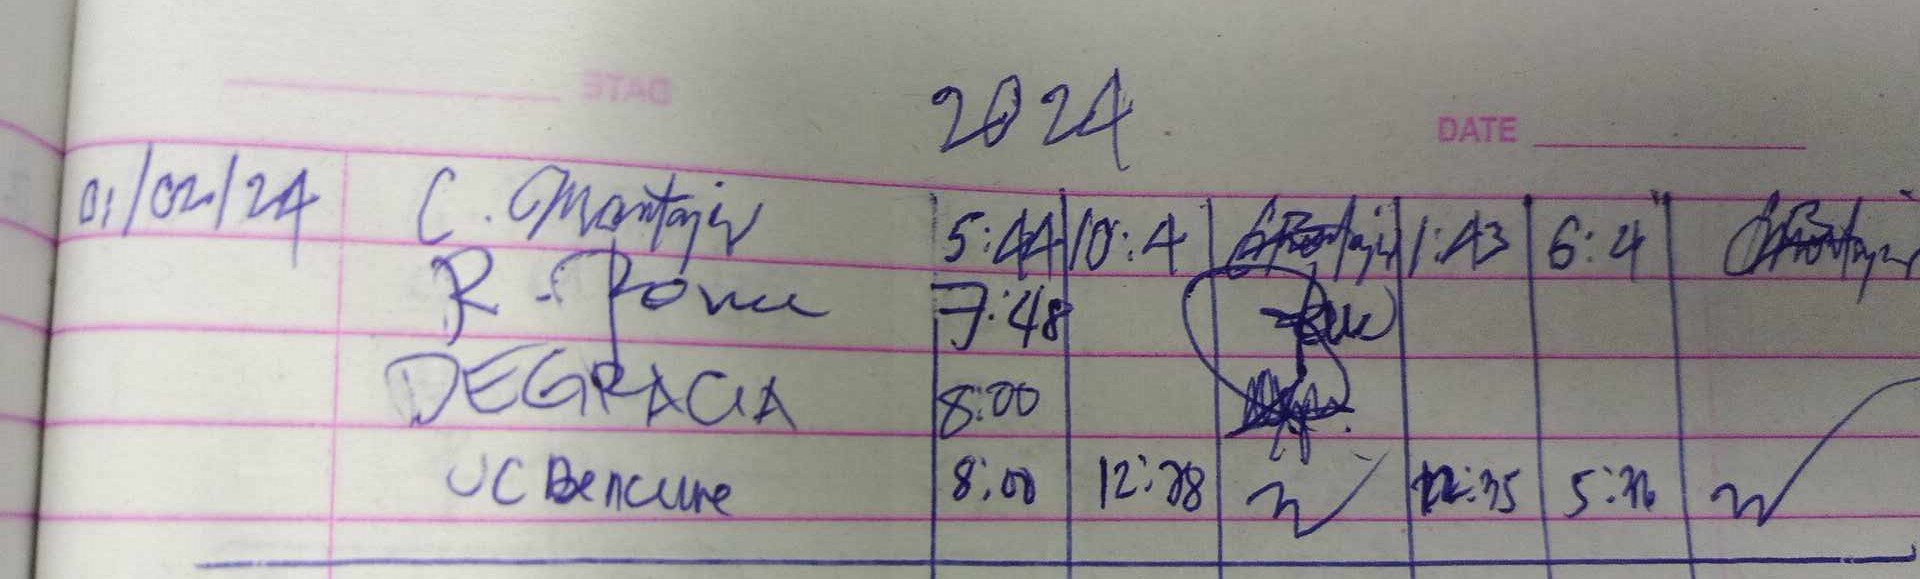 DATE
2024
DATE
01/02/24 C. Mantajir 5:44 10:4 1:43 6:4
R. Ponce 7:48
DEGRACIA 8:00
JC Bencure 8:00 12:28 12:35 5:36